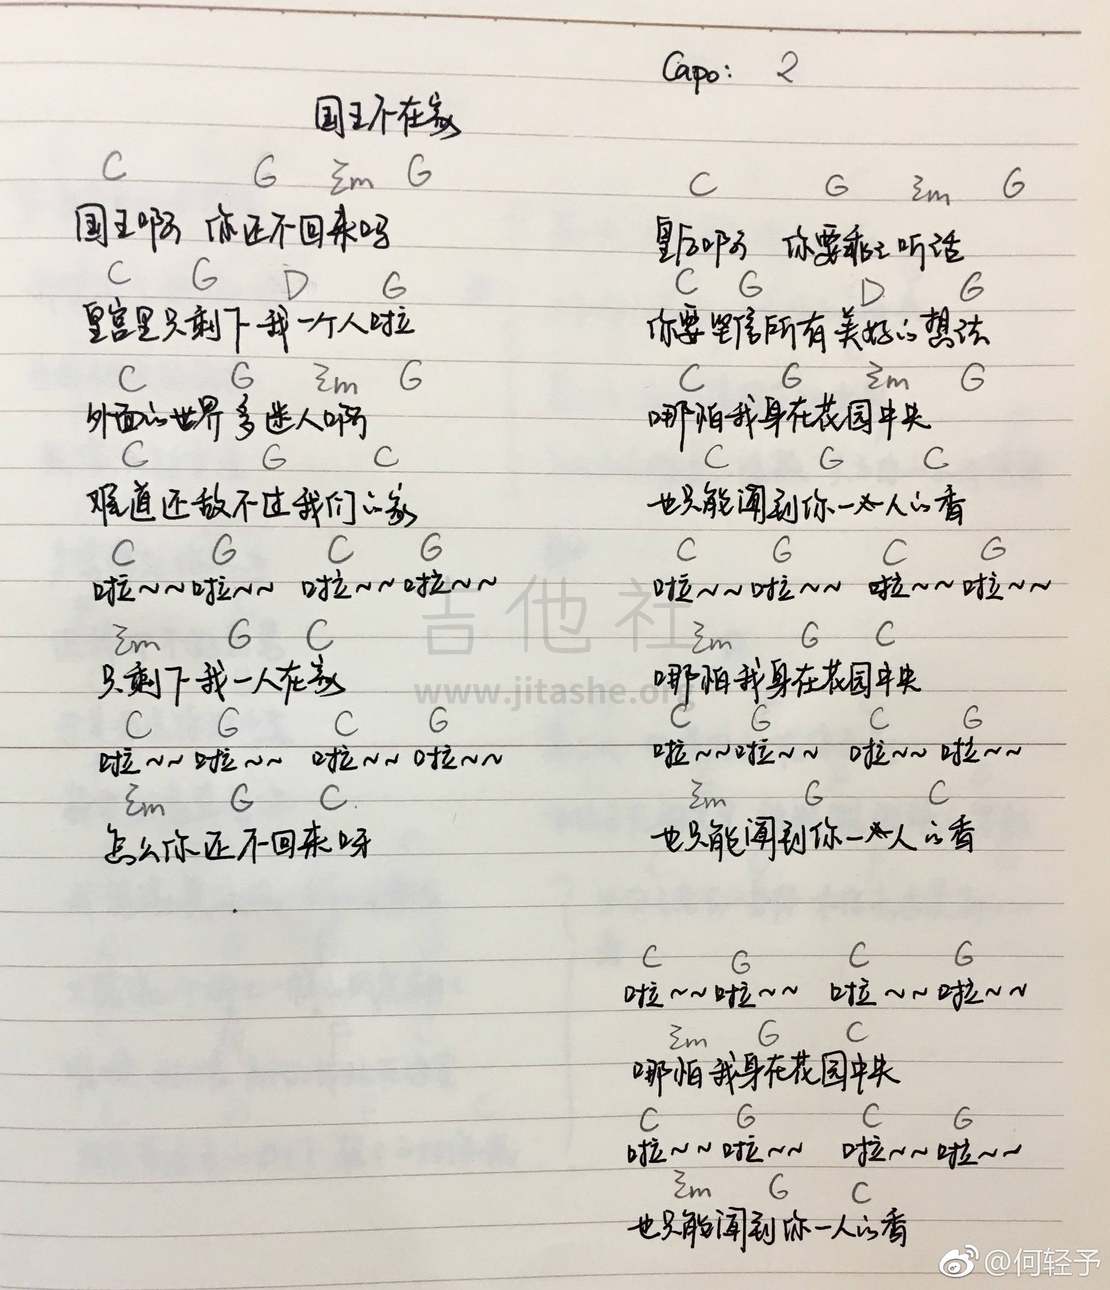 Capo: 2
国王不在家
C G Em G
国王啊 你还不回来吗
C G D G
皇宫里只剩下我一个人啦
C G Em G
外面的世界多迷人啊
C G C
难道还敌不过我们的家
C G C G
啦~~啦~~ 啦~~啦~~
Em G C
只剩下我一人在家
C G C G
啦~~啦~~ 啦~~啦~~
Em G C.
怎么你还不回来呀
C G Em G
皇后啊 你要乖乖听话
C G D G
你要坚信所有美好的想法
C G Em G
哪怕我身在花园中央
C G C
也只能闻到你一个人的香
C G C G
啦~~啦~~ 啦~~啦~~
Em G C
哪怕我身在花园中央
C G C G
啦~~啦~~ 啦~~啦~~
Em G C
也只能闻到你一个人的香
C G C G
啦~~啦~~ 啦~~啦~~
Em G C
哪怕我身在花园中央
C G C G
啦~~啦~~ 啦~~啦~~
Em G C
也只能闻到你一人的香
吉他社
www.jitashe.org
@何轻予